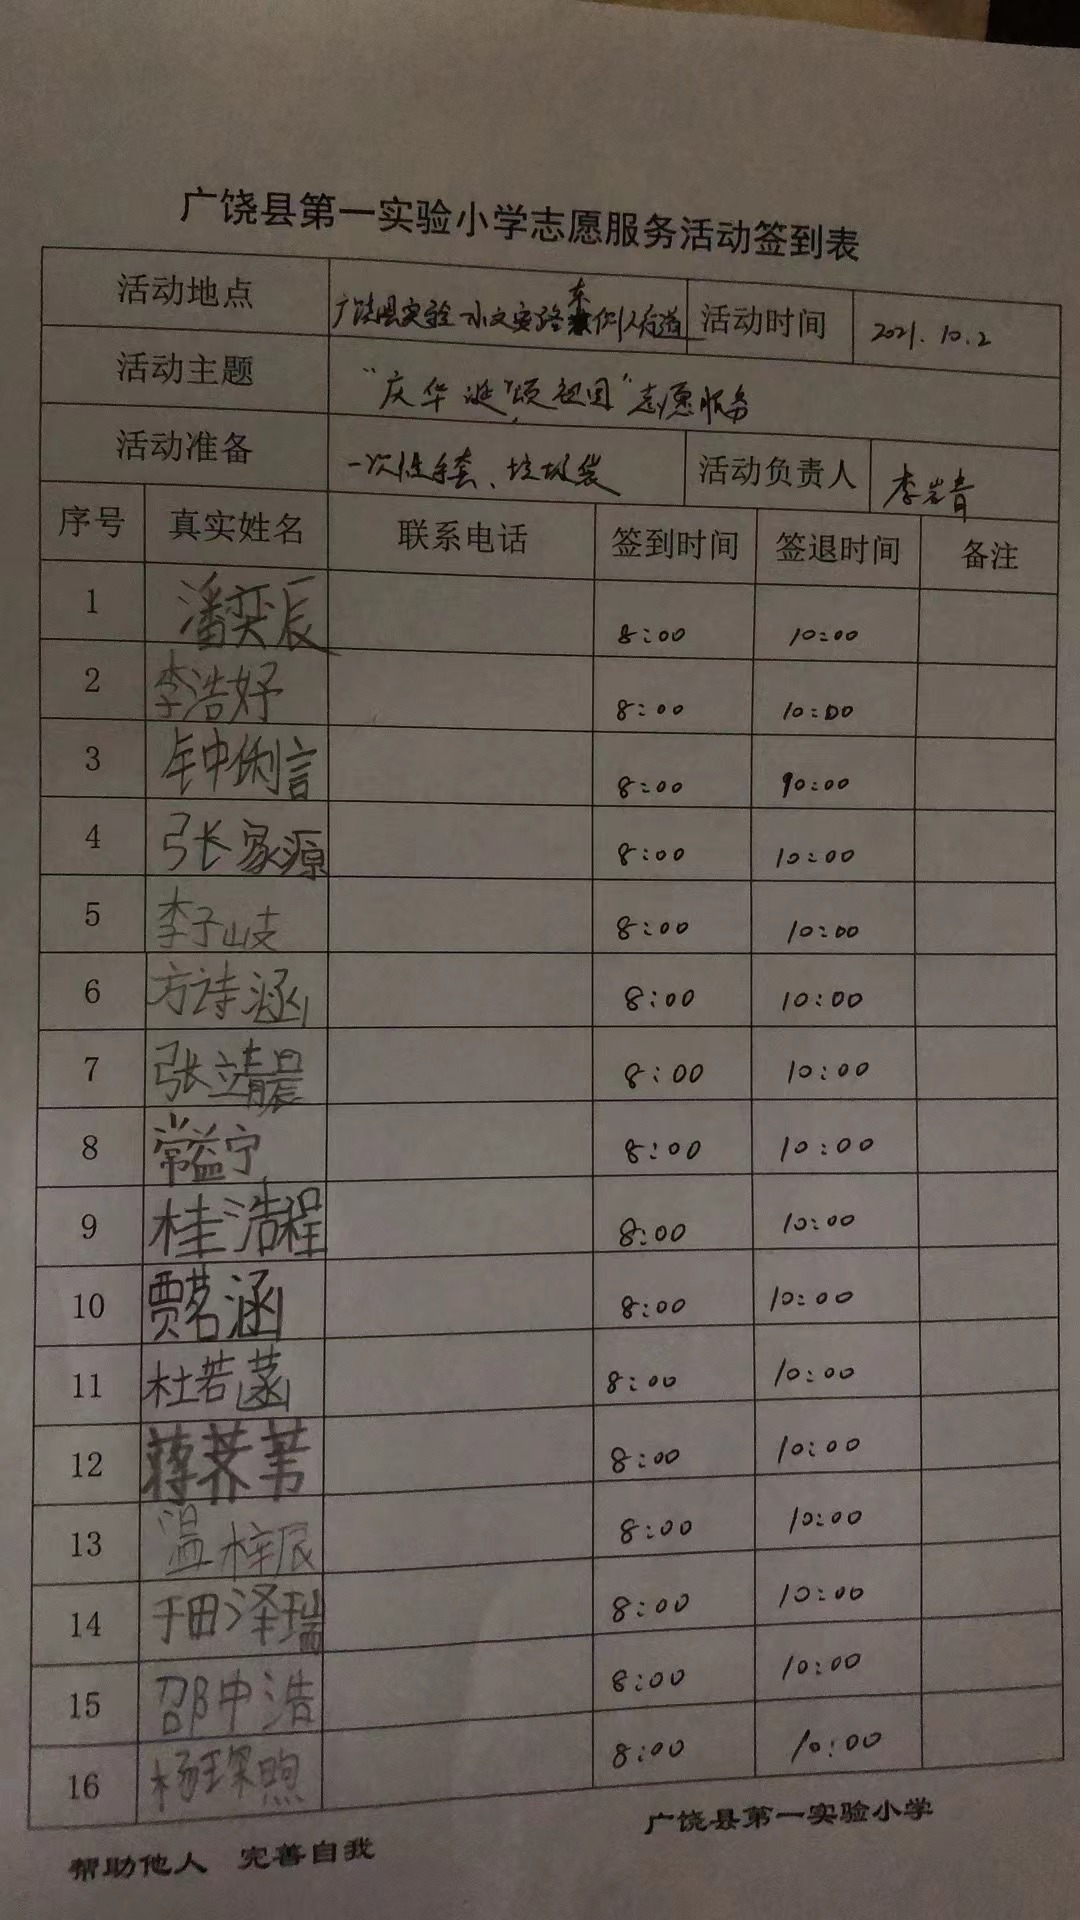 广饶县第一实验小学志愿服务活动签到表
活动地点 广饶县实验 水文实路东侧人行道 活动时间 2021.10.2
活动主题 “庆华诞 颂祖国”志愿服务
活动准备 一次性手套、垃圾袋 活动负责人 李岩青
序号 真实姓名 联系电话 签到时间 签退时间 备注
1 潘奕辰 8:00 10:00
2 李浩妤 8:00 10:00
3 钟俐言 8:00 10:00
4 张家源 8:00 10:00
5 李子岐 8:00 10:00
6 方诗涵 8:00 10:00
7 张靖晨 8:00 10:00
8 常益宁 8:00 10:00
9 桂浩程 8:00 10:00
10 贾茗涵 8:00 10:00
11 杜若菡 8:00 10:00
12 蒋荞芳 8:00 10:00
13 温梓辰 8:00 10:00
14 于田泽瑞 8:00 10:00
15 邵中浩 8:00 10:00
16 杨琛煦 8:00 10:00
帮助他人 完善自我 广饶县第一实验小学